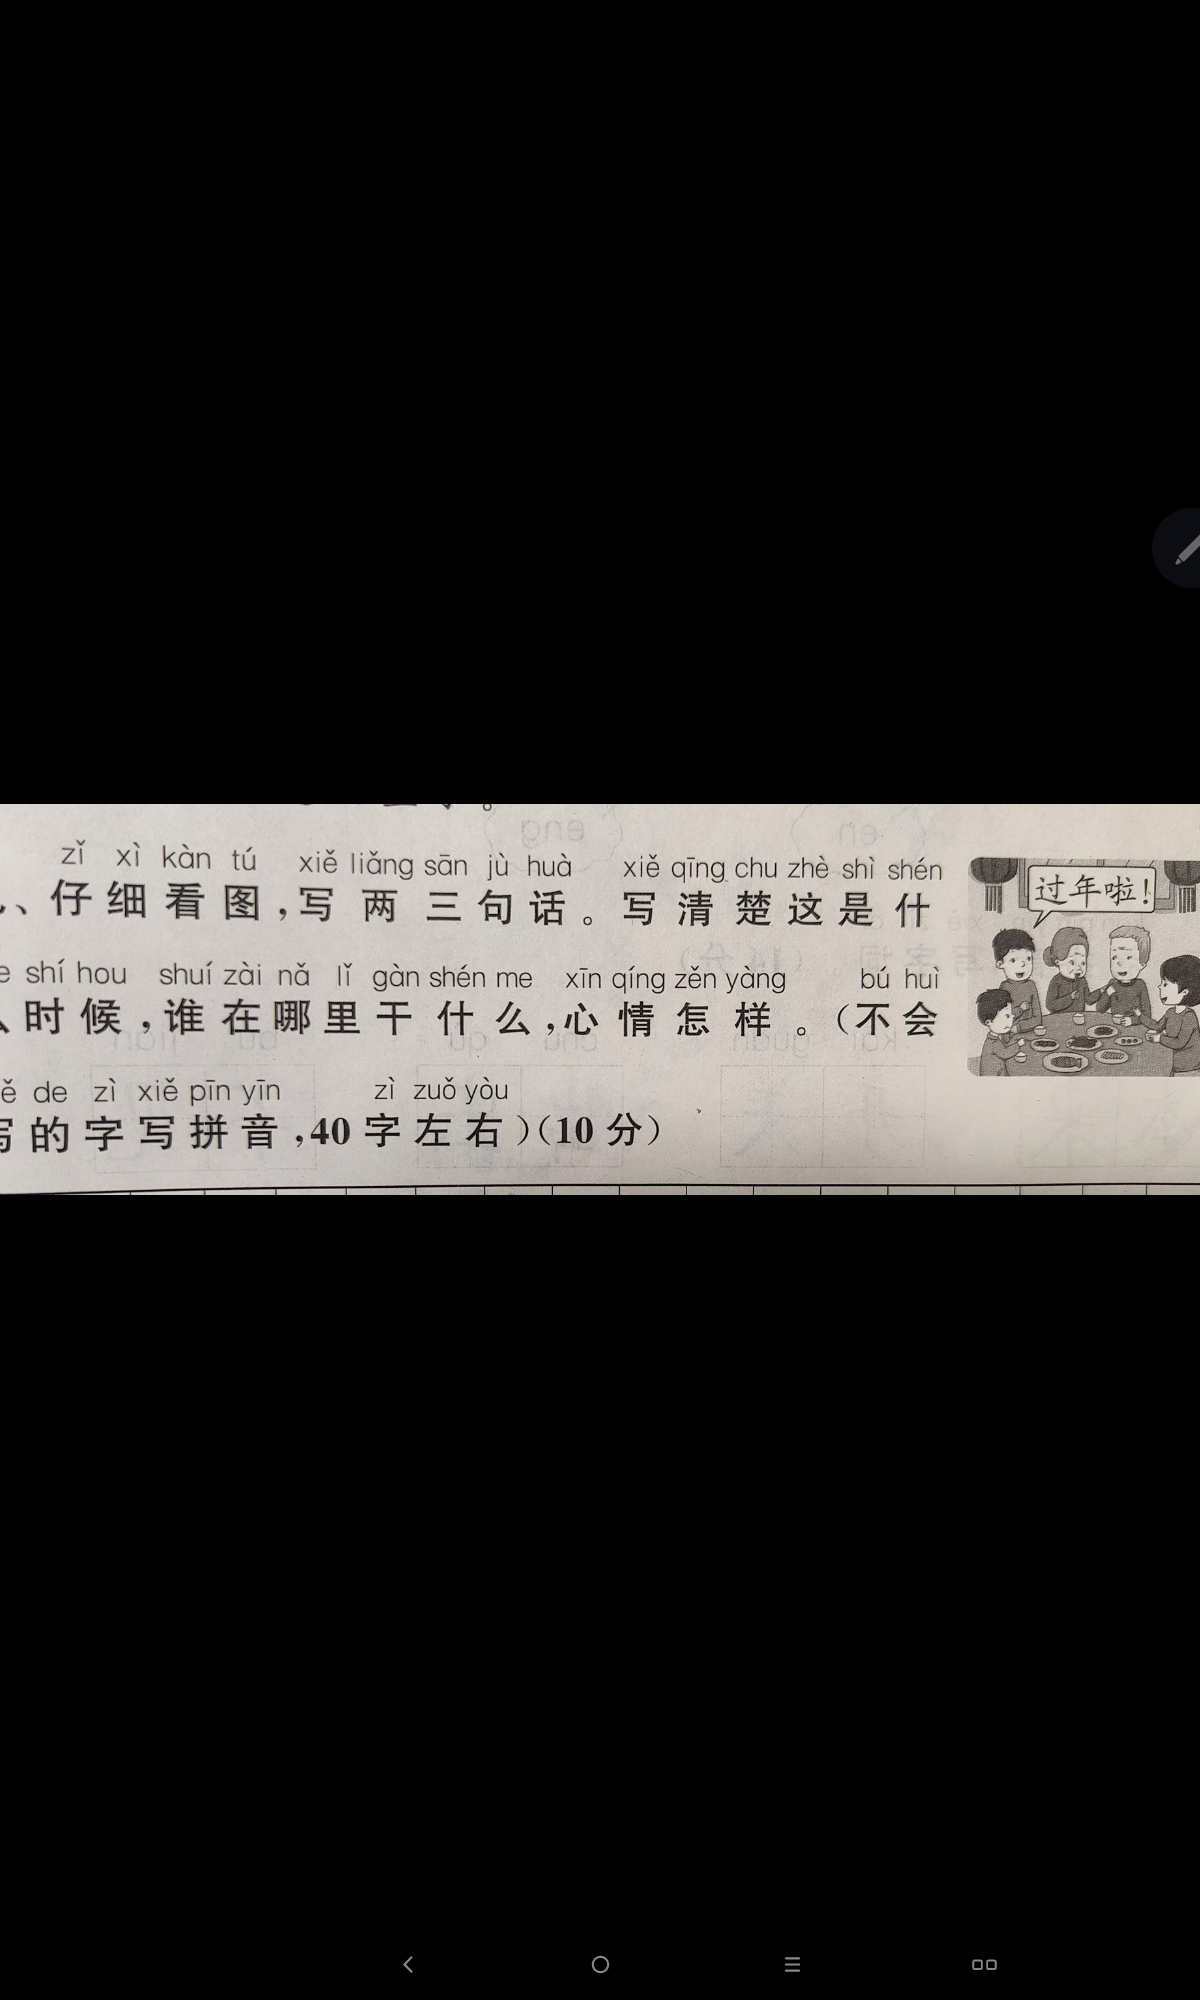 zǐ xì kàn tú xiě liǎng sān jù huà xiě qīng chu zhè shì shén
、仔细看图,写两三句话。写清楚这是什
过年啦!
shí hou shuí zài nǎ lǐ gàn shén me xīn qíng zěn yàng bú huì
时候,谁在哪里干什么,心情怎样。(不会
de zì xiě pīn yīn zì zuǒ yòu
的字写拼音,40字左右)(10分)